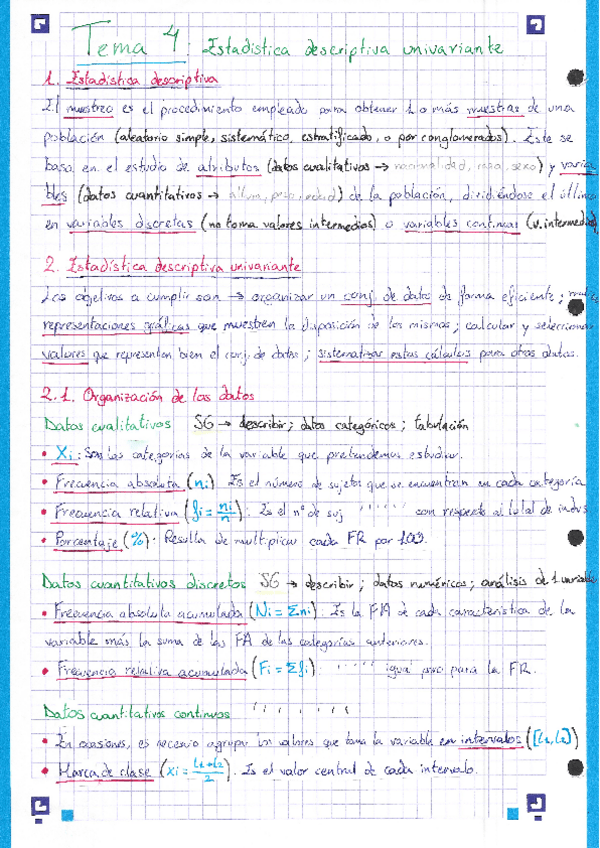 Tema 4: Estadística descriptiva univariante
1. Estadística descriptiva
El muestreo es el procedimiento empleado para obtener 1 o más muestras de una
población (aleatorio simple, sistemático, estratificado, o por conglomerados). Este se
basa en el estudio de atributos (datos cualitativos → nacionalidad, raza, sexo) y varia
bles (datos cuantitativos → altura, peso, edad) de la población, dividiéndose el último
en variables discretas (no toma valores intermedios) o variables continuas (v. intermedios)
2. Estadística descriptiva univariante
Los objetivos a cumplir son → organizar un conj. de datos de forma eficiente;
representaciones gráficas que muestren la disposición de los mismos; calcular y seleccionar
valores que representan bien el conj. de datos; sistematizar estos cálculos para otros datos.
2.1. Organización de los datos
Datos cualitativos SG → describir; datos categóricos; tabulación
• Xi: Son las categorías de la variable que pretendemos estudiar.
• Frecuencia absoluta (ni) Es el número de sujetos que se encuentran en cada categoría
• Frecuencia relativa (fi = ni/n): Es el nº de suj " " " " " con respecto al total de indvs
• Porcentaje (%): Resulta de multiplicar cada FR por 100.
Datos cuantitativos discretos SG → describir; datos numéricos; análisis de 1 variable
• Frecuencia absoluta acumulada (Ni = Σni) Es la FA de cada característica de la
variable más la suma de las FA de las categorías anteriores.
• Frecuencia relativa acumulada (Fi = Σfi) " " " " igual pero para la FR.
Datos cuantitativos continuos " " " " " "
• En ocasiones, es necesario agrupar los valores que toma la variable en intervalos ([L1, L2])
• Marca de clase (xi = L1+L2/2). Es el valor central de cada intervalo.